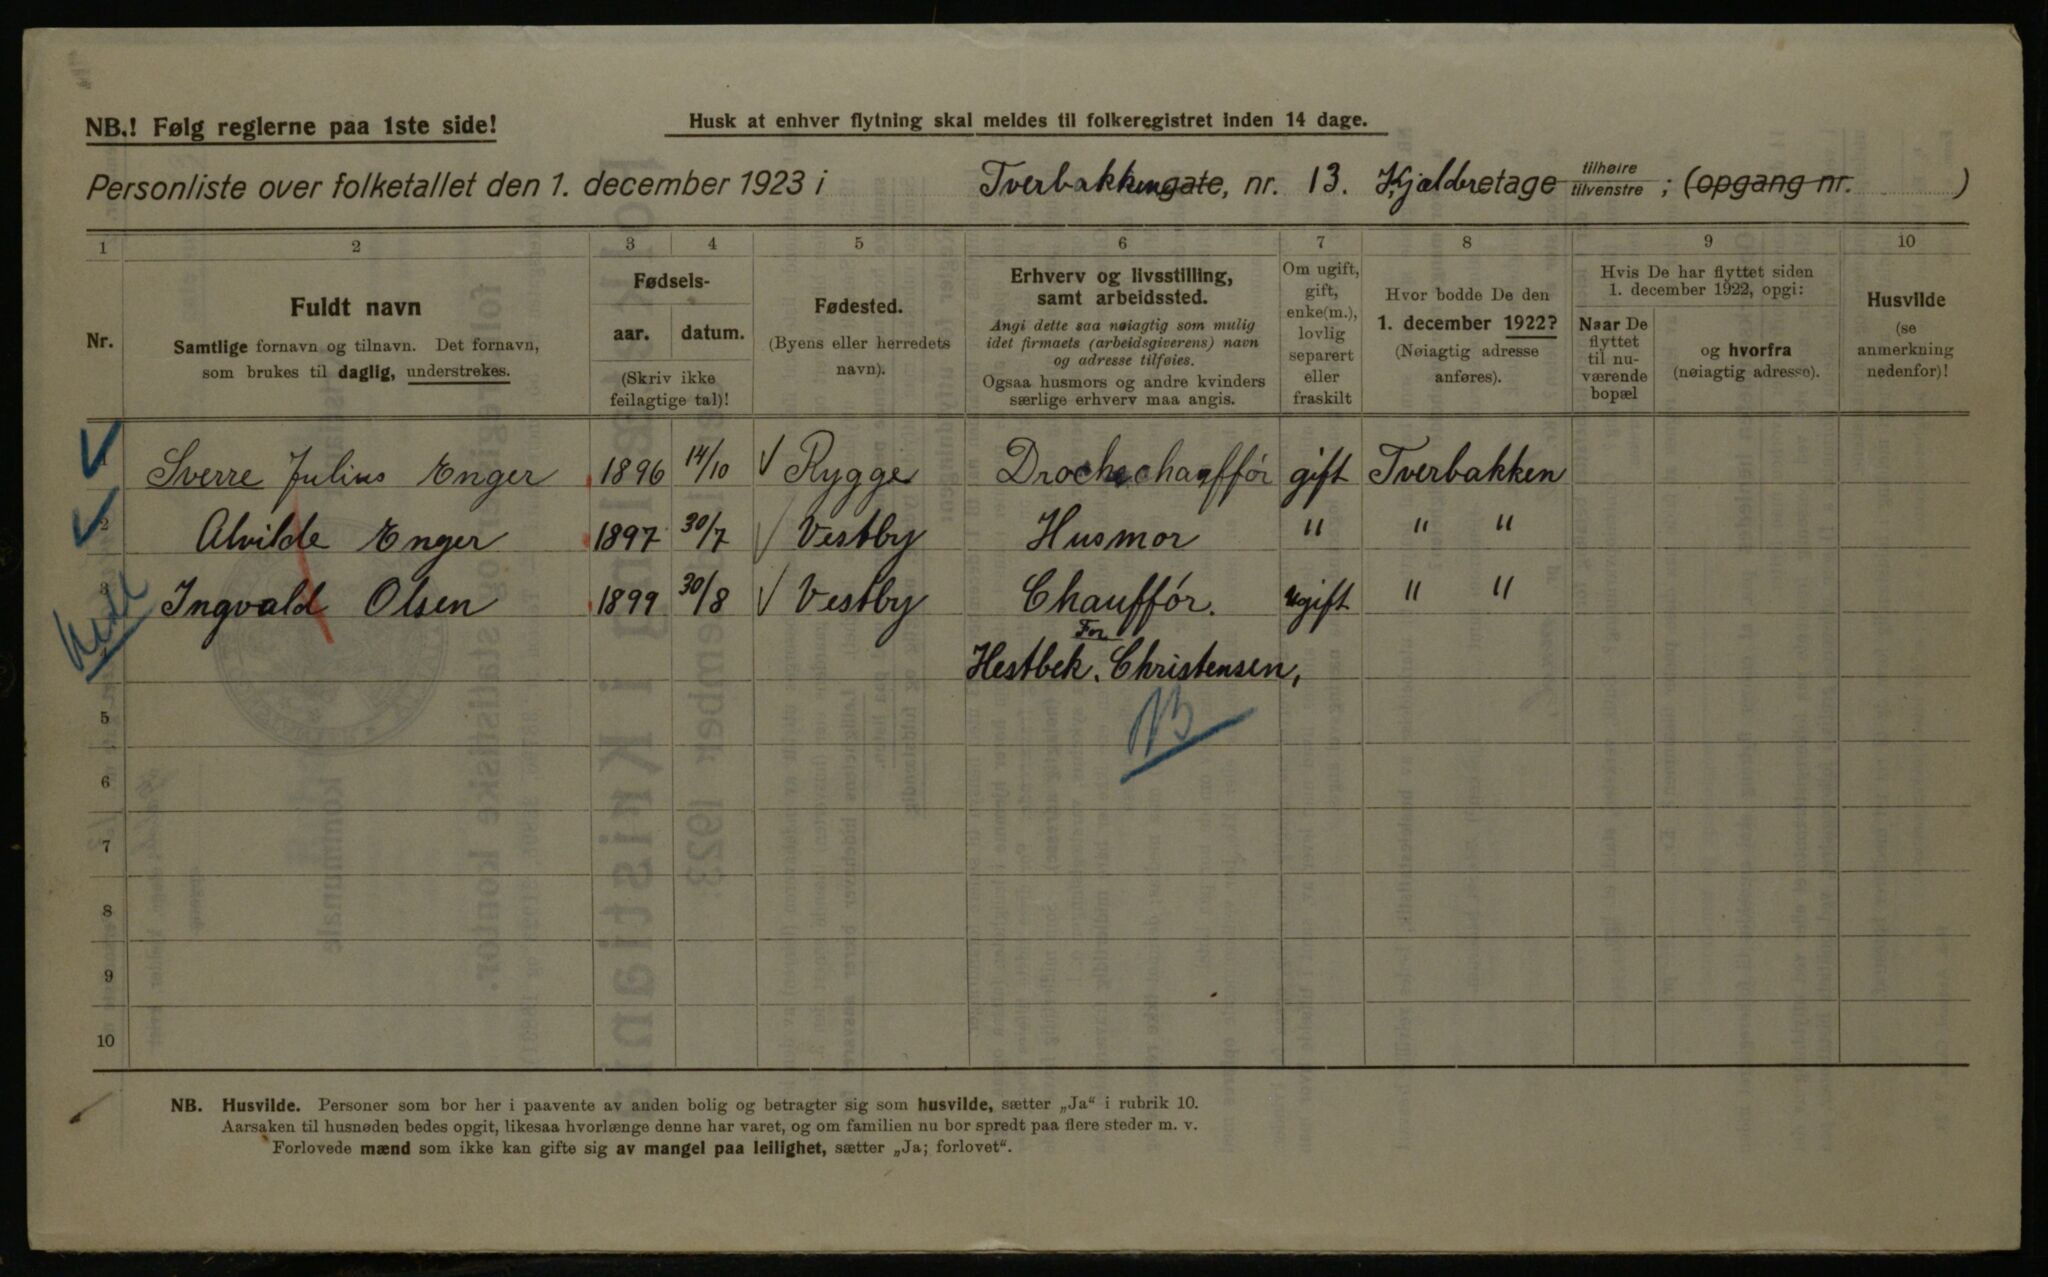 NB.! Følg reglerne paa 1ste side!
Husk at enhver flytning skal meldes til folkeregistret inden 14 dage.
Personliste over folketallet den 1. december 1923 i Tverbakkengate, nr. 13. Kjælderetage tilhøire tilvenstre ; (opgang nr. )
1 2 3 4 5 6 7 8 9 10
Nr.
Fuldt navn
Samtlige fornavn og tilnavn. Det fornavn,
som brukes til daglig, understrekes.
Fødsels-
aar. datum.
(Skriv ikke
feilagtige tal)!
Fødested.
(Byens eller herredets
navn).
Erhverv og livsstilling,
samt arbeidssted.
Angi dette saa nøiagtig som mulig
idet firmaets (arbeidsgiverens) navn
og adresse tilføies.
Ogsaa husmors og andre kvinders
særlige erhverv maa angis.
Om ugift,
gift,
enke(m.),
lovlig
separert
eller
fraskilt
Hvor bodde De den
1. december 1922?
(Nøiagtig adresse
anføres).
Hvis De har flyttet siden
1. december 1922, opgi:
Naar De
flyttet
til nu-
værende
bopæl
og hvorfra
(nøiagtig adresse).
Husvilde
(se
anmerkning
nedenfor)!
1 Sverre Julius Enger 1896 14/10 Rygge Droschechauffør gift Tverbakken
2 Alvilde Enger 1897 30/7 Vestby Husmor " " "
3 Ingvald Olsen 1899 30/8 Vestby Chauffør. ugift " "
For
Hestbek. Christensen,
NB
5
6
7
8
9
10
NB. Husvilde. Personer som bor her i paavente av anden bolig og betragter sig som husvilde, sætter „Ja" i rubrik 10.
Aarsaken til husnøden bedes opgit, likesaa hvorlænge denne har varet, og om familien nu bor spredt paa flere steder m. v.
Forlovede mænd som ikke kan gifte sig av mangel paa leilighet, sætter „Ja; forlovet".